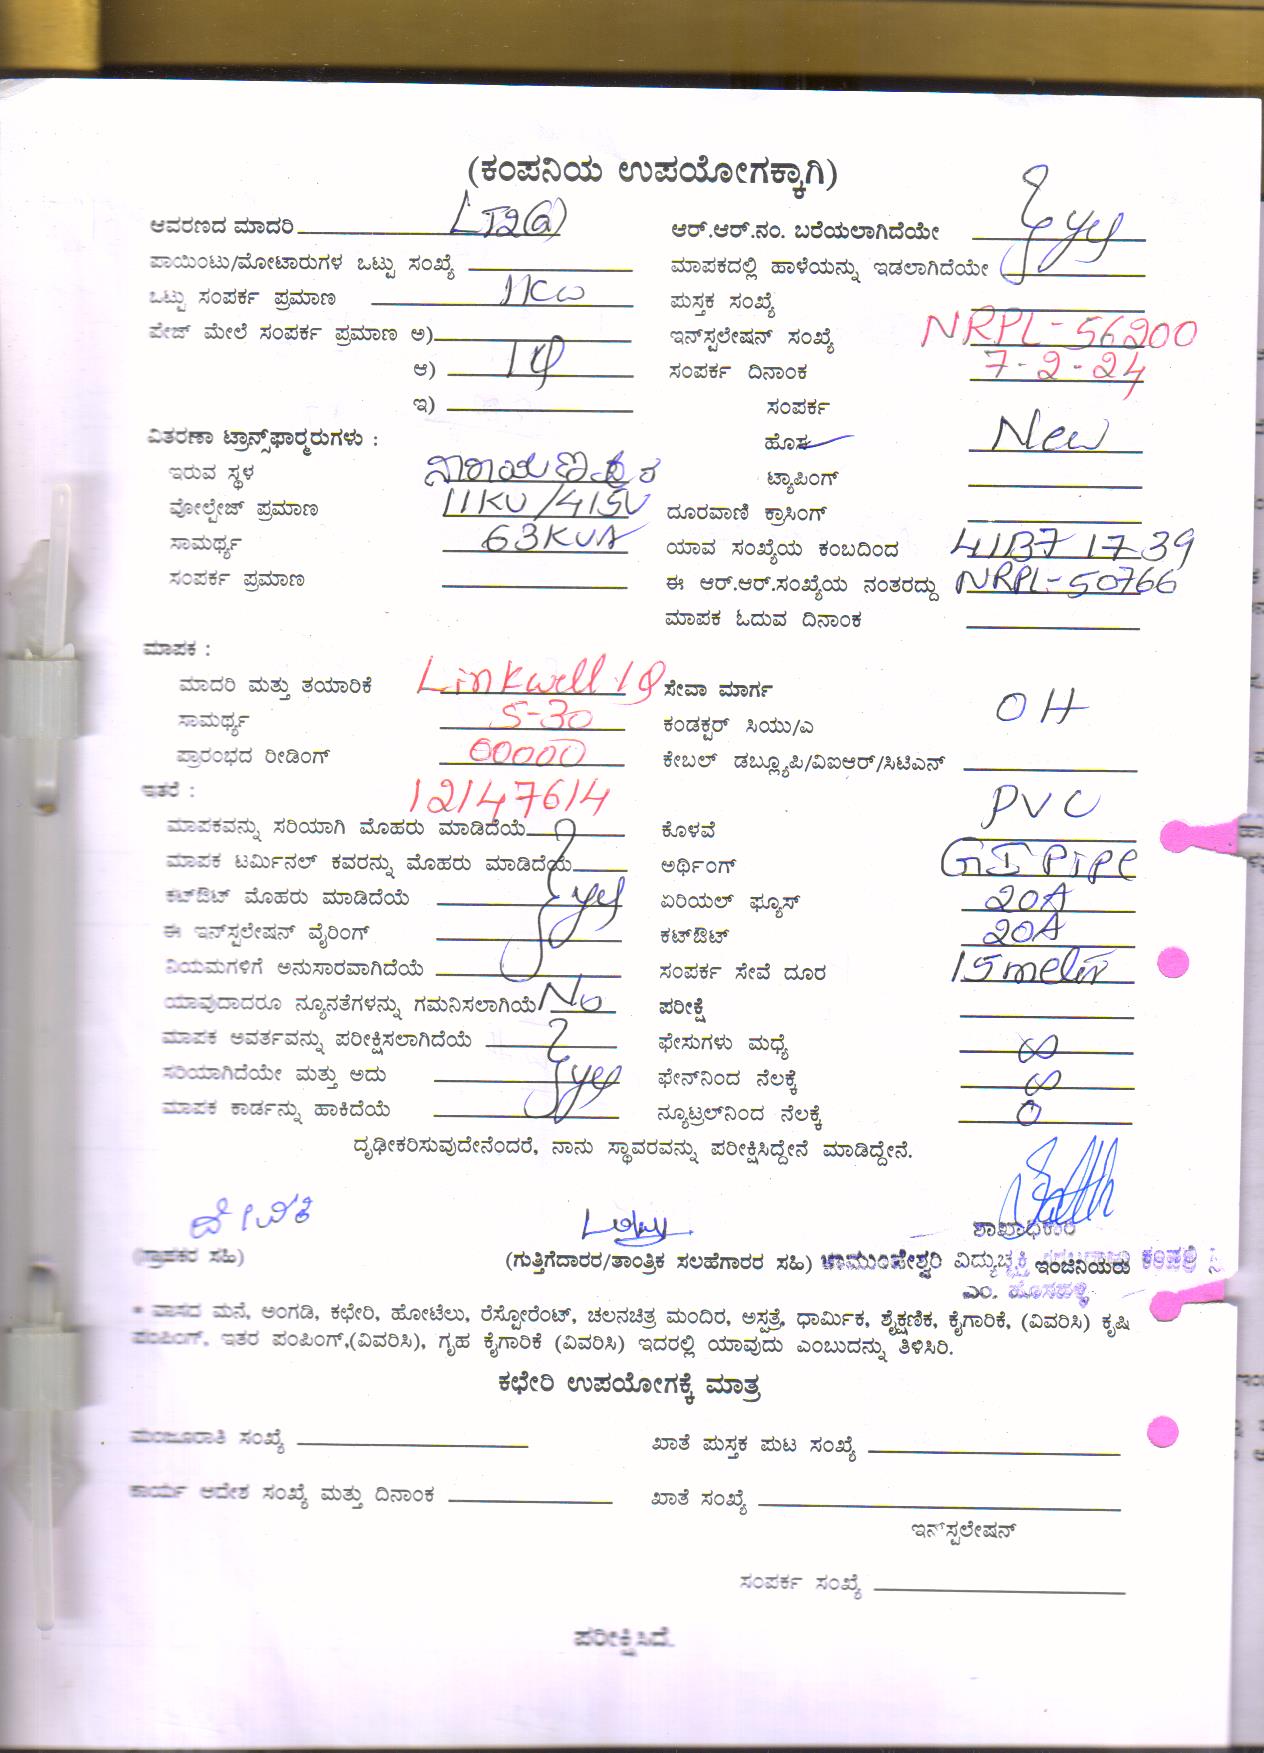 (ಕಂಪನಿಯ ಉಪಯೋಗಕ್ಕಾಗಿ)
ಆವರಣದ ಮಾದರಿ LT2(a)
ಪಾಯಿಂಟು/ಮೋಟಾರುಗಳ ಒಟ್ಟು ಸಂಖ್ಯೆ
ಒಟ್ಟು ಸಂಪರ್ಕ ಪ್ರಮಾಣ 1KW
ಪೇಜ್ ಮೇಲೆ ಸಂಪರ್ಕ ಪ್ರಮಾಣ ಅ)
ಆ) 1φ
ಇ)
ವಿತರಣಾ ಟ್ರಾನ್ಸ್‌ಫಾರ್ಮರುಗಳು :
ಇರುವ ಸ್ಥಳ
ವೋಲ್ಟೇಜ್ ಪ್ರಮಾಣ 11KV/415V
ಸಾಮರ್ಥ್ಯ 63KVA
ಸಂಪರ್ಕ ಪ್ರಮಾಣ
ಆರ್.ಆರ್.ನಂ. ಬರೆಯಲಾಗಿದೆಯೇ
ಮಾಪಕದಲ್ಲಿ ಹಾಳೆಯನ್ನು ಇಡಲಾಗಿದೆಯೇ
yes
ಪುಸ್ತಕ ಸಂಖ್ಯೆ
ಇನ್‌ಸ್ಟಲೇಷನ್ ಸಂಖ್ಯೆ NRPL-56200
ಸಂಪರ್ಕ ದಿನಾಂಕ 7-2-24
ಸಂಪರ್ಕ
ಹೊಸ New
ಟ್ಯಾಪಿಂಗ್
ದೂರವಾಣಿ ಕ್ರಾಸಿಂಗ್
ಯಾವ ಸಂಖ್ಯೆಯ ಕಂಬದಿಂದ 41B7 17-39
ಈ ಆರ್.ಆರ್.ಸಂಖ್ಯೆಯ ನಂತರದ್ದು NRPL-50766
ಮಾಪಕ ಓದುವ ದಿನಾಂಕ
ಮಾಪಕ :
ಮಾದರಿ ಮತ್ತು ತಯಾರಿಕೆ Linkwell 1φ
ಸಾಮರ್ಥ್ಯ 5-30
ಪ್ರಾರಂಭದ ರೀಡಿಂಗ್ 00000
ಇತರೆ : 12147614
ಮಾಪಕವನ್ನು ಸರಿಯಾಗಿ ಮೊಹರು ಮಾಡಿದೆಯೆ
ಮಾಪಕ ಟರ್ಮಿನಲ್ ಕವರನ್ನು ಮೊಹರು ಮಾಡಿದೆಯೆ
ಕಟ್‌ಔಟ್ ಮೊಹರು ಮಾಡಿದೆಯೆ yes
ಈ ಇನ್‌ಸ್ಟಲೇಷನ್ ವೈರಿಂಗ್
ನಿಯಮಗಳಿಗೆ ಅನುಸಾರವಾಗಿದೆಯೆ
ಯಾವುದಾದರೂ ನ್ಯೂನತೆಗಳನ್ನು ಗಮನಿಸಲಾಗಿಯೆ No
ಮಾಪಕ ಅವರ್ತವನ್ನು ಪರೀಕ್ಷಿಸಲಾಗಿದೆಯೆ
ಸರಿಯಾಗಿದೆಯೇ ಮತ್ತು ಅದು yes
ಮಾಪಕ ಕಾರ್ಡನ್ನು ಹಾಕಿದೆಯೆ
ಸೇವಾ ಮಾರ್ಗ
ಕಂಡಕ್ಟರ್ ಸಿಯು/ಎ OH
ಕೇಬಲ್ ಡಬ್ಲ್ಯೂಪಿ/ವಿಐಆರ್/ಸಿಟಿಎನ್
ಕೊಳವೆ PVC
ಅರ್ಥಿಂಗ್ GI PIPE
ಏರಿಯಲ್ ಫ್ಯೂಸ್ 20A
ಕಟ್‌ಔಟ್ 20A
ಸಂಪರ್ಕ ಸೇವೆ ದೂರ 15 meter
ಪರೀಕ್ಷೆ
ಫೇಸುಗಳು ಮಧ್ಯೆ ∞
ಫೇನ್‌ನಿಂದ ನೆಲಕ್ಕೆ ∞
ನ್ಯೂಟ್ರಲ್‌ನಿಂದ ನೆಲಕ್ಕೆ 0
ದೃಢೀಕರಿಸುವುದೇನೆಂದರೆ, ನಾನು ಸ್ಥಾವರವನ್ನು ಪರೀಕ್ಷಿಸಿದ್ದೇನೆ ಮಾಡಿದ್ದೇನೆ.
ದೇವಿಕಿ
ಶಾಖಾಧಿಕಾರಿ
(ಗ್ರಾಹಕರ ಸಹಿ) (ಗುತ್ತಿಗೆದಾರರ/ತಾಂತ್ರಿಕ ಸಲಹೆಗಾರರ ಸಹಿ) ಚಾಮುಂಡೇಶ್ವರಿ ವಿದ್ಯುಚ್ಛಕ್ತಿ ಇಂಜಿನಿಯರು ಕಂಪನಿ
* ವಾಸದ ಮನೆ, ಅಂಗಡಿ, ಕಛೇರಿ, ಹೋಟೆಲು, ರೆಸ್ಟೋರೆಂಟ್, ಚಲನಚಿತ್ರ ಮಂದಿರ, ಅಸ್ಪತ್ರೆ, ಧಾರ್ಮಿಕ, ಶೈಕ್ಷಣಿಕ, ಕೈಗಾರಿಕೆ, (ವಿವರಿಸಿ) ಕೃಷಿ
ಪಂಪಿಂಗ್, ಇತರ ಪಂಪಿಂಗ್,(ವಿವರಿಸಿ), ಗೃಹ ಕೈಗಾರಿಕೆ (ವಿವರಿಸಿ) ಇದರಲ್ಲಿ ಯಾವುದು ಎಂಬುದನ್ನು ತಿಳಿಸಿರಿ.
ಕಛೇರಿ ಉಪಯೋಗಕ್ಕೆ ಮಾತ್ರ
ಮಂಜೂರಾತಿ ಸಂಖ್ಯೆ ಖಾತೆ ಪುಸ್ತಕ ಪುಟ ಸಂಖ್ಯೆ
ಕಾರ್ಯ ಆದೇಶ ಸಂಖ್ಯೆ ಮತ್ತು ದಿನಾಂಕ ಖಾತೆ ಸಂಖ್ಯೆ
ಇನ್‌ಸ್ಟಲೇಷನ್
ಸಂಪರ್ಕ ಸಂಖ್ಯೆ
ಪರೀಕ್ಷಿಸಿದೆ.